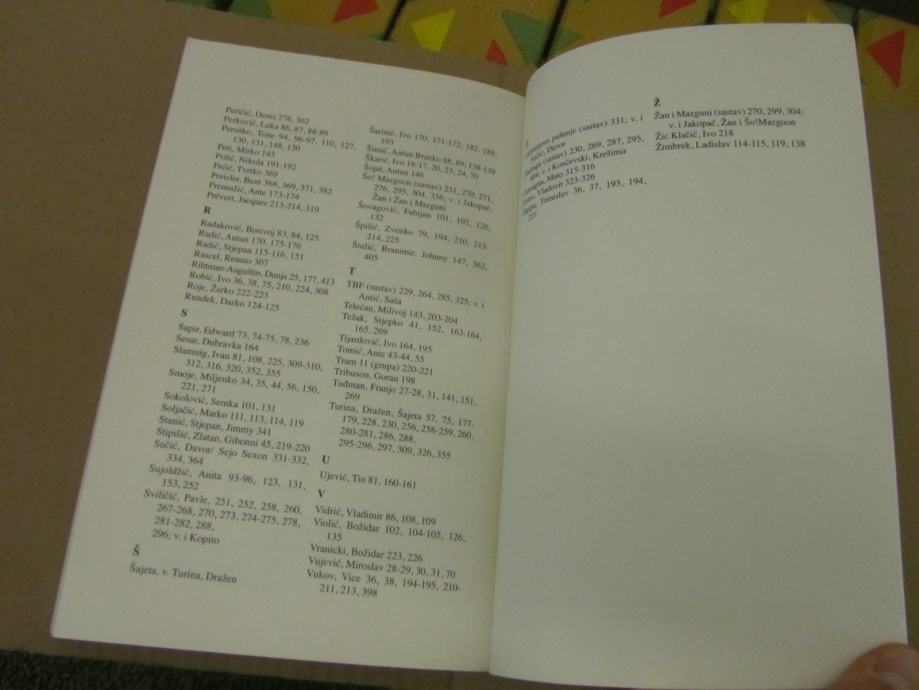 Peričić, Denis 276, 362
Perković, Luka 86, 87, 88-89
Peruško, Tone 94, 96-97, 110, 127,
130, 131, 148, 150
Peti, Mirko 143
Polić, Nikola 191-192
Pečić, Tvrtko 369
Preisler, Bent 368, 369, 371, 382
Premužić, Ante 173-174
Prévert, Jacques 213-214, 319
R
Radaković, Borivoj 83, 84, 125
Radić, Antun 170, 175-176
Radić, Stjepan 115-116, 151
Rascel, Renato 307
Rihtman-Auguštin, Dunja 25, 177, 413
Robić, Ivo 36, 38, 75, 210, 224, 308
Roje, Žarko 222-223
Rundek, Darko 124-125
S
Sapir, Edward 73, 74-75, 78, 236
Sesar, Dubravka 164
Slamnig, Ivan 81, 108, 225, 309-310,
312, 316, 320, 352, 355
Smoje, Miljenko 34, 35, 44, 56, 150,
221, 271
Sokolović, Semka 101, 131
Soljačić, Marko 111, 113, 114, 119
Stanić, Stjepan, Jimmy 341
Stipišić, Zlatan, Gibonni 45, 219-220
Sučić, Davor/ Sejo Sexon 331-332,
334, 364
Sujoldžić, Anita 93-96, 123, 131,
153, 252
Sviličić, Pavle, 251, 252, 258, 260,
267-268, 270, 273, 274-275, 278,
281-282, 288,
296; v. i Kopito
Š
Šajeta, v. Turina, Dražen
Šarinić, Ivo 170, 171-172, 182, 188,
193
Šimić, Antun Branko 88, 89, 138-139
Škarić, Ivo 16-17, 20, 23, 24, 70
Šojat, Antun 146
Šo! Mazgoon (sastav) 251, 270, 271,
276, 295, 304, 356; v. i Jakopač,
Žan i Žan i Mazguni
Šovagović, Fabijan 101, 102, 126,
132
Špišić, Zvonko 79, 194, 210, 213-
214, 225
Štulić, Branimir, Johnny 147, 362,
405
T
TBF (sastav) 229, 264, 285, 325; v. i
Antić, Saša
Telećan, Milivoj 143, 203-204
Težak, Stjepko 41, 152, 163-164,
165, 269
Tijardović, Ivo 164, 195
Tomić, Ante 43-44, 55
Tram 11 (grupa) 220-221
Tribuson, Goran 198
Tuđman, Franjo 27-28, 31, 141, 151,
269
Turina, Dražen, Šajeta 57, 75, 177-
179, 228, 230, 256, 258-259, 260,
280-281, 286, 288,
295-296, 297, 309, 326, 355
U
Ujević, Tin 81, 160-161
V
Vidrić, Vladimir 86, 108, 109
Violić, Božidar 102, 104-105, 126,
135
Vranicki, Božidar 223, 226
Vujević, Miroslav 28-29, 30, 31, 70
Vukov, Vice 36, 38, 194-195, 210-
211, 213, 398
pušenje (sastav) 331; v. i
Davor
(sastav) 230, 269, 287, 295,
v. i Končevski, Krešimir
Mato 315-316
Vladovit 323-326
Tomislav 36, 37, 193, 194,
221
Ž
Žan i Mazguni (sastav) 270, 299, 304;
v. i Jakopač, Žan i Šo!Mazgoon
Žic Klačić, Ivo 218
Žimbrek, Ladislav 114-115, 119, 138